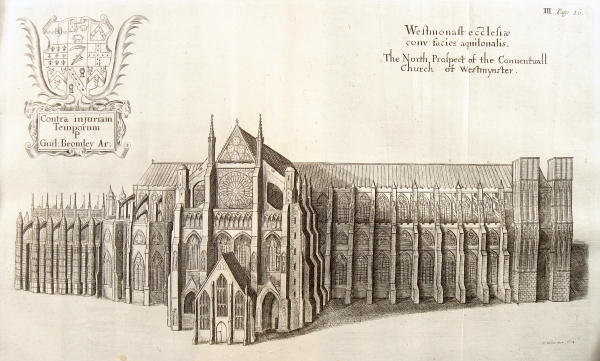 III. Page 26
Westmonast: ecclesiæ
conv: facies aquilonalis.
The North Prospect of the Conventuall
Church of Westmynster.
Contra injuriam
Temporum
P
Guil: Bromley Ar: